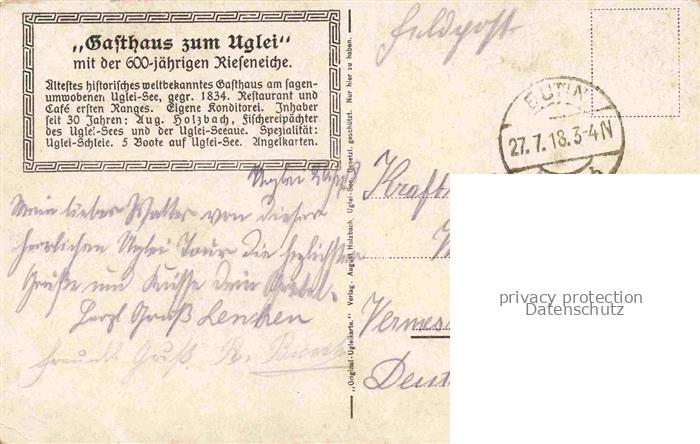 „Gasthaus zum Uglei“
mit der 600-jährigen Rieseneiche.
Ältestes historisches weltbekanntes Gasthaus am sagen-
umwobenen Uglei-See, gegr. 1834. Restaurant und
Café ersten Ranges. Eigene Konditorei. Inhaber
seit 30 Jahren: Aug. Holzbach, Fischereipächter
des Uglei-Sees und der Uglei-Seeaue. Spezialität:
Uglei-Schleie. 5 Boote auf Uglei-See. Angelkarten.
Feldpost
EUTIN
27.7.18.3-4N
b
Uglei
Mein lieber Walter von dieser
herrlichen Uglei Tour die herzlichsten
Grüße und Küsse Dein
Herzl Gruß Lenchen
Freundl. Gruß
Kraft
Vermes
Deut
„Original-Ugleikarte.“ Verlag.- August Holzbach, Uglei-See. Gesetzl. geschützt. Nur hier zu haben.
privacy protection
Datenschutz